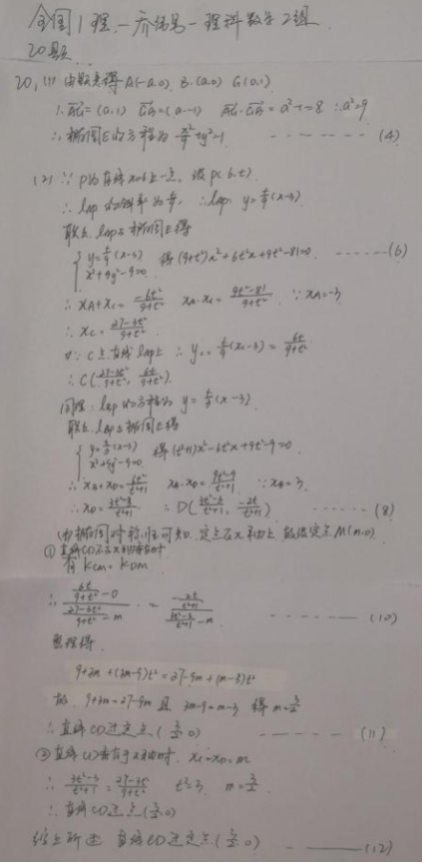 全国1理 - 乔伟男 - 理科数学2组
20题
20, (1) 由题意得 A(-a,0), B(a,0) G(0,1)
∴ AG=(a,1) GB=(a,-1) AG·GB=a²-1=8 ∴a²=9
∴椭圆E的方程为 x²/9+y²=1 ------ (4)
(2) ∵ P为直线x=6上一点, 设P(6,t)
∴ lAP的斜率为t/9, ∴lAP: y=t/9(x+3)
联立lAP与椭圆E得
{ y=t/9(x+3) x²+9y²-9=0 得(9+t²)x²+6t²x+9t²-81=0 ------ (6)
∴ xA+xC=-6t²/9+t² xA·xC=9t²-81/9+t² ∵ xA=-3
∴ xC=27-3t²/9+t²
∵ C在直线lAP上 ∴ yC=t/9(xC+3)=6t/9+t²
∴ C(27-3t²/9+t², 6t/9+t²)
同理: lBP的方程为 y=t/3(x-3)
联立lBP与椭圆E得
{ y=t/3(x-3) x²+9y²-9=0 得(t²+1)x²-6t²x+9t²-9=0
∴ xB+xD=6t²/t²+1 xB·xD=9t²-9/t²+1 ∵xB=3
∴ xD=3t²-3/t²+1 ∴ D(3t²-3/t²+1, -2t/t²+1) ------ (8)
由椭圆对称性可知, 定点在x轴上, 故设定点M(m,0)
① 直线CD不与x轴垂直时
有 kCM=kDM
∴ (6t/9+t²-0)/(27-3t²/9+t²-m) = (-2t/t²+1)/(3t²-3/t²+1-m) ------ (10)
整理得
9+3m+(3m-9)t²=27-9m+(m-3)t²
故 9+3m=27-9m 且 3m-9=m-3 得 m=3/2
∴直线CD过定点(3/2,0) ------ (11)
② 直线CD垂直于x轴时, xC=xD=m
∴ 3t²-3/t²+1=27-3t²/9+t² t²=3 m=3/2
∴ 直线CD过点(3/2,0)
综上所述 直线CD过定点(3/2,0) ------ (12)